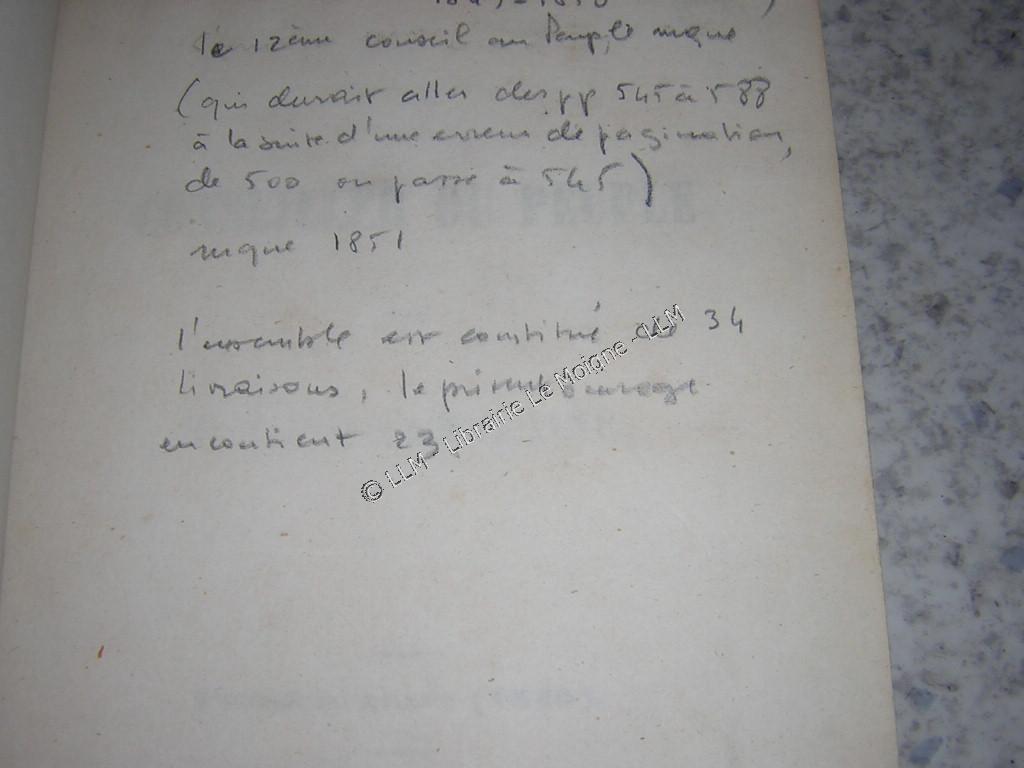 1849-1850 )
le 12ème conseil au Peuple mque
(qui devait aller des pp 545 à 588
à la suite d'une erreur de pagination,
de 500 on passe à 545)
mque 1851
l'ensemble est constitué de 34
livraisons, le présent ouvrage
en contient 23
© LLM - Librairie Le Moigne - LLM
DU PEUPLE